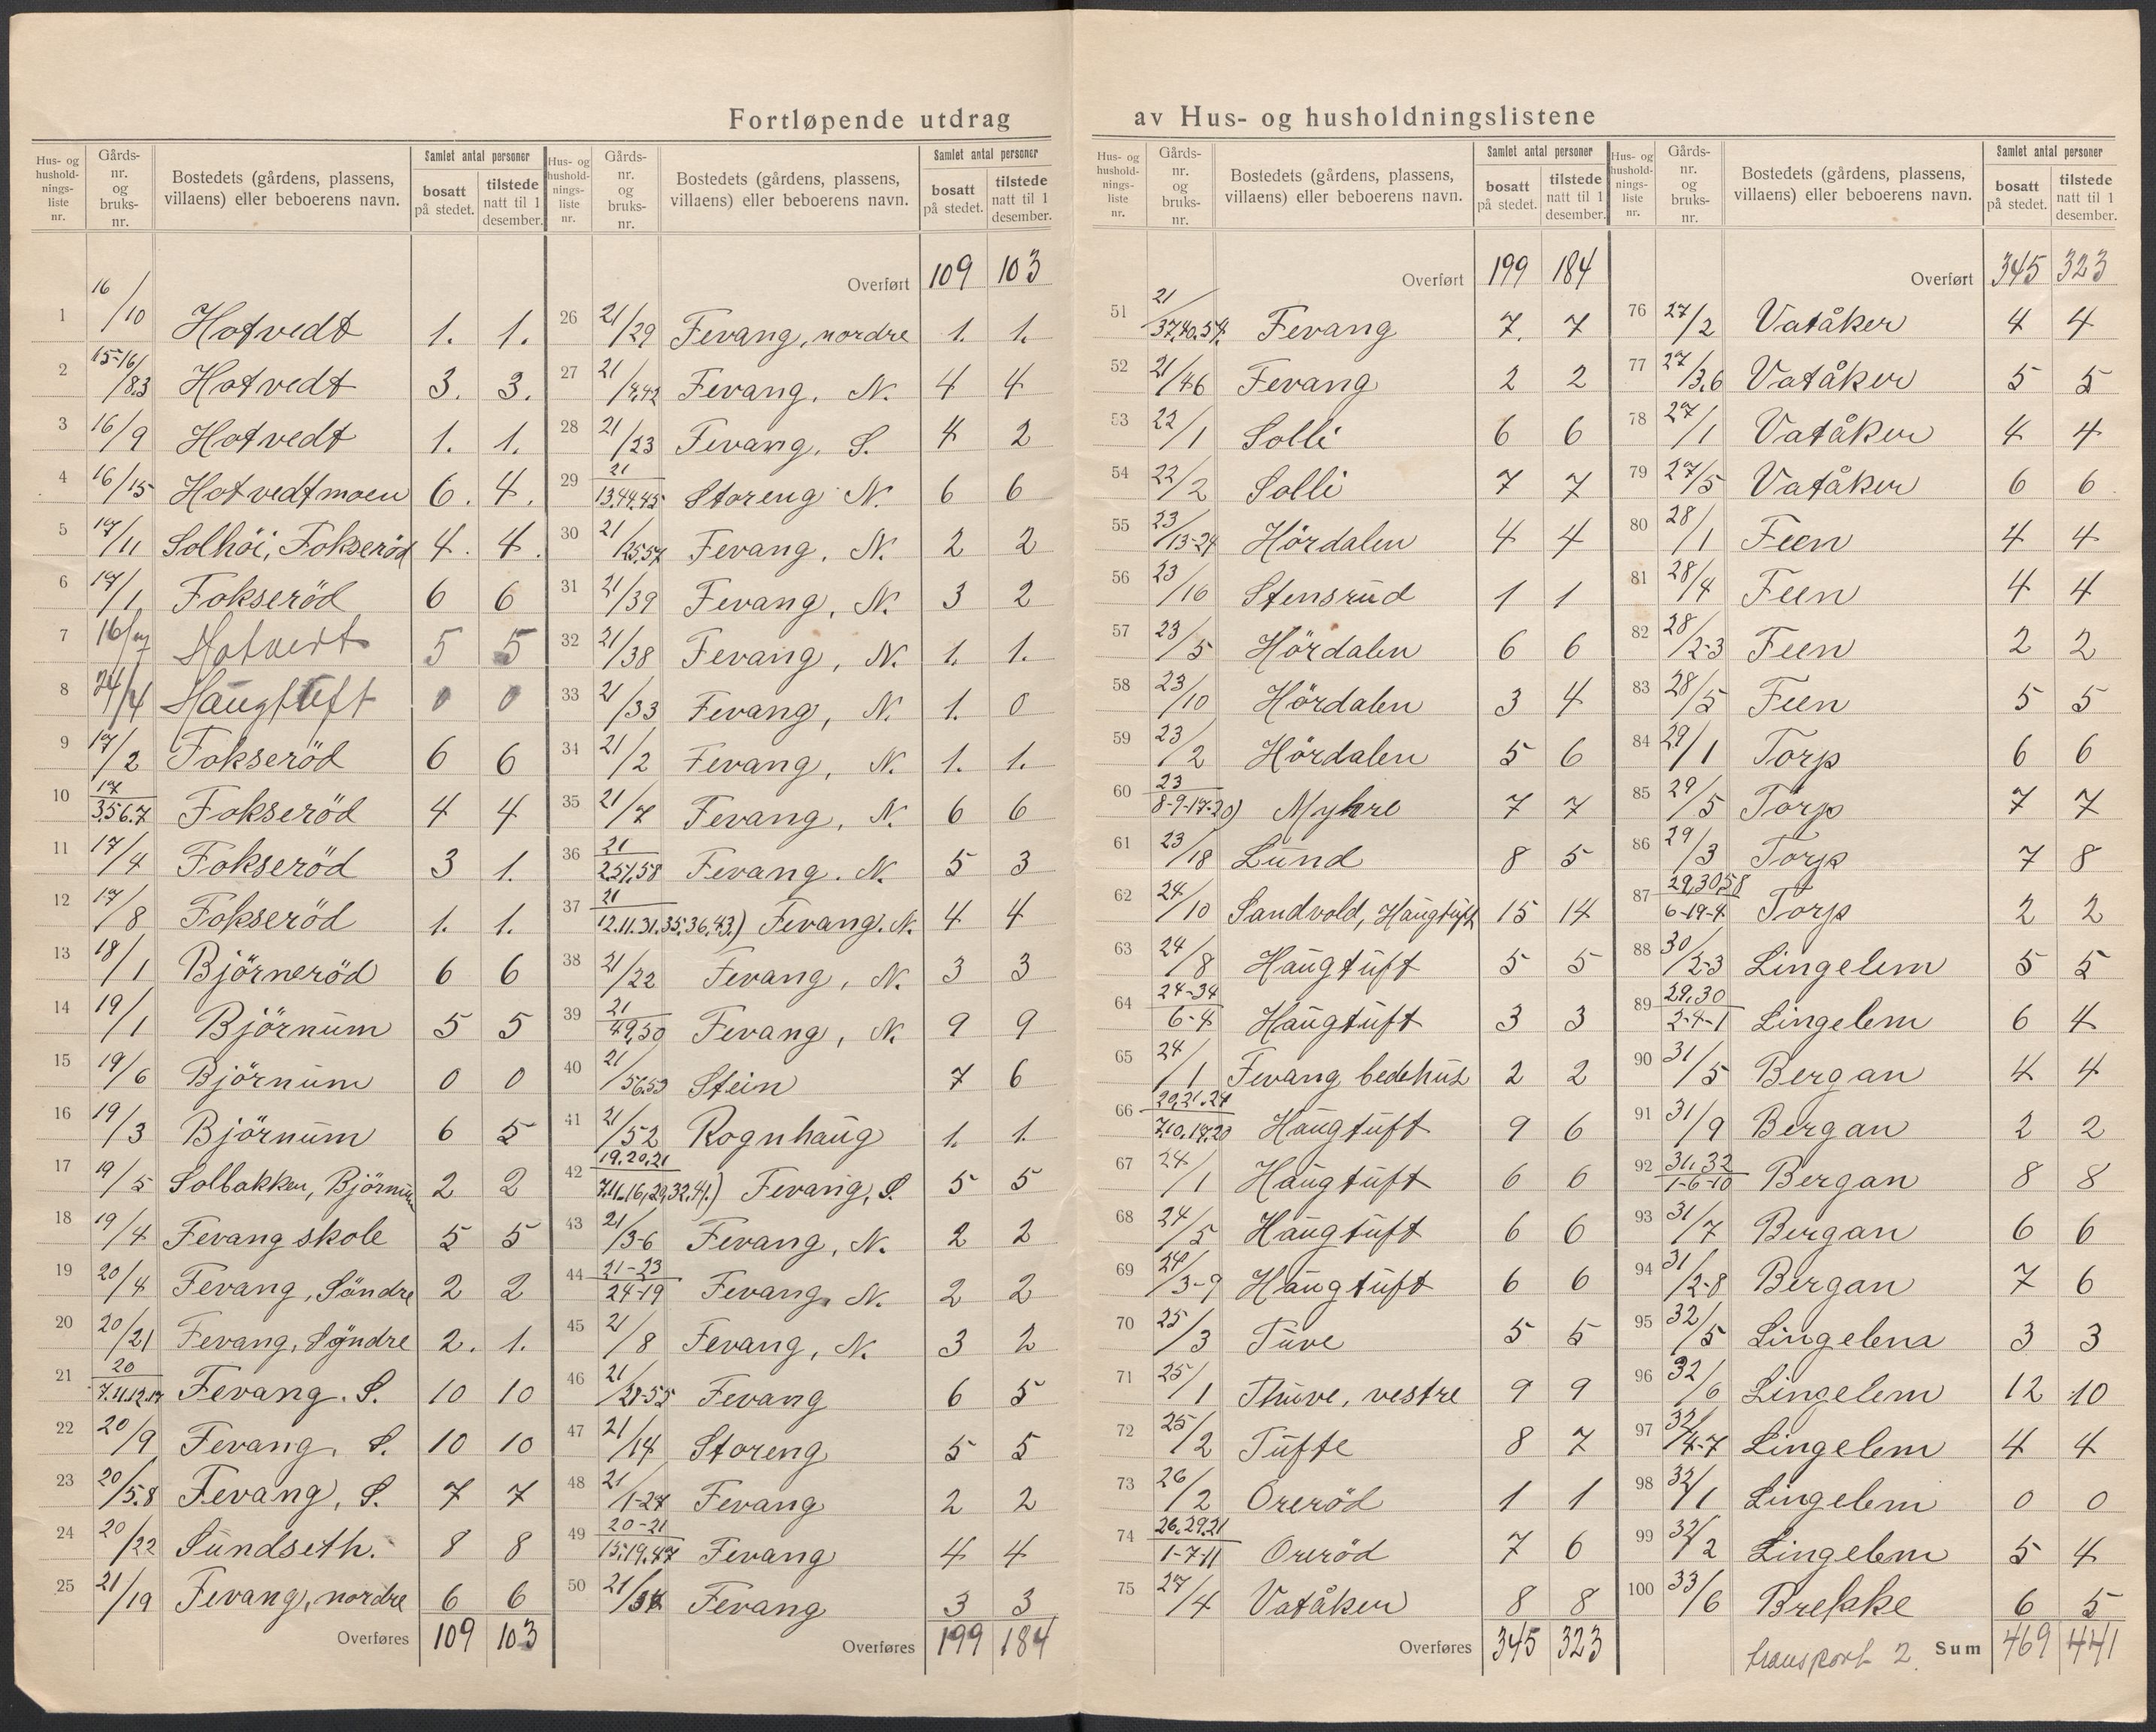 Fortløpende utdrag av Hus- og husholdningslistene
Hus- og husholdnings- liste nr. | Gårds- nr. og bruks- nr. | Bostedets (gårdens, plassens, villaens) eller beboerens navn. | Samlet antal personer: bosatt på stedet. | tilstede natt til 1 desember.
1 16/10 Hotvedt 1. 1.
2 15-16/83 Hotvedt 3. 3.
3 16/9 Hotvedt 1. 1.
4 16/15 Hotvedtmoen 6. 4.
5 17/11 Solhöi, Fokseröd 4. 4.
6 17/1 Fokseröd 6 6
7 16/ Hotvedt 5 5
8 24/4 Haugtuft 0 0
9 17/2 Fokseröd 6 6
10 17/3.5.6.7 Fokseröd 4 4
11 17/4 Fokseröd 3 1.
12 17/8 Fokseröd 1. 1.
13 18/1 Björneröd 6 6
14 19/1 Björnum 5 5
15 19/6 Björnum 0 0
16 19/3 Björnum 6 5
17 19/5 Solbakken, Björnum 2 2
18 19/4 Fevang skole 5 5
19 20/4 Fevang, Söndre 2 2
20 20/21 Fevang, Syndre 2. 1.
21 20/7.11.12.17 Fevang. S. 10 10
22 20/9 Fevang, S. 10 10
23 20/5.8 Fevang, S. 7 7
24 20/22 Sundseth. 8 8
25 21/19 Fevang, nordre 6 6
Overføres 109 103
Hus- og husholdnings- liste nr. | Gårds- nr. og bruks- nr. | Bostedets (gårdens, plassens, villaens) eller beboerens navn. | Samlet antal personer: bosatt på stedet. | tilstede natt til 1 desember.
Overført 109 103
26 21/29 Fevang, nordre 1. 1.
27 21/4,42 Fevang, N. 4 4
28 21/23 Fevang, S. 4 2
29 21/13.44.45 Storeng N. 6 6
30 21/25.57 Fevang, N. 2 2
31 21/39 Fevang, N. 3 2
32 21/38 Fevang, N. 1. 1.
33 21/33 Fevang, N. 1. 0
34 21/2 Fevang, N. 1. 1.
35 21/7 Fevang, N. 6 6
36 21/2.51.58 Fevang. N. 5 3
37 21/12.11.31.35.36.43.) Fevang. N. 4 4
38 21/22 Fevang, N. 3 3
39 21/49,50 Fevang, N. 9 9
40 21/56.53 Stein 7 6
41 21/52 Rognhaug 1. 1.
42 19.20.21/7.11.16,29,32,41.) Fevang, S. 5 5
43 21/3-6 Fevang, N. 2 2
44 21-23/24-19 Fevang, N. 2 2
45 21/8 Fevang, N. 3 2
46 21/28-55 Fevang 6 5
47 21/14 Storeng 5 5
48 21/1-27 Fevang 2 2
49 20-21/15.19.47 Fevang 4 4
50 21/ Fevang 3 3
Overføres 199 184
Hus- og husholdnings- liste nr. | Gårds- nr. og bruks- nr. | Bostedets (gårdens, plassens, villaens) eller beboerens navn. | Samlet antal personer: bosatt på stedet. | tilstede natt til 1 desember.
Overført 199 184
51 21/37,40.54. Fevang 7. 7
52 21/46 Fevang 2 2
53 22/1 Solli 6 6
54 22/2 Solli 7 7
55 23/13-24 Hördalen 4 4
56 23/16 Stensrud 1 1
57 23/5 Hördalen 6 6
58 23/10 Hördalen 3 4
59 23/2 Hördalen 5 6
60 23/8-9-17-20) Myhre 7 7
61 23/18 Lund 8 5
62 24/10 Sandvold, Haugtuft 15 14
63 24/8 Haugtuft 5 5
64 24-34/6-4 Haugtuft 3 3
65 24/1 Fevang bedehus 2 2
66 20,21.24/7.10,17,20 Haugtuft 9 6
67 24/1 Haugtuft 6 6
68 24/5 Haugtuft 6 6
69 24/3-9 Haugtuft 6 6
70 25/3 Tuve 5 5
71 25/1 Thuve, vestre 9 9
72 25/2 Tufte 8 7
73 26/2 Oreröd 1 1
74 26.29.21/1-7-11 Oreröd 7 6
75 27/4 Vatåker 8 8
Overføres 345 323
Hus- og husholdnings- liste nr. | Gårds- nr. og bruks- nr. | Bostedets (gårdens, plassens, villaens) eller beboerens navn. | Samlet antal personer: bosatt på stedet. | tilstede natt til 1 desember.
Overført 345 323
76 27/2 Vatåker 4 4
77 27/3,6 Vatåker 5 5
78 27/1 Vatåker 4 4
79 27/5 Vatåker 6 6
80 28/1 Feen 4 4
81 28/4 Feen 4 4
82 28/2-3 Feen 2 2
83 28/5 Feen 5 5
84 29/1 Torp 6 6
85 29/5 Torp 7 7
86 29/3 Torp 7 8
87 29,30,58/6-19-4 Torp 2 2
88 30/2-3 Lingelem 5 5
89 29.30/2-4-1 Lingelem 6 4
90 31/5 Bergan 4 4
91 31/9 Bergan 2 2
92 31,32/1-6-10 Bergan 8 8
93 31/7 Bergan 6 6
94 31/2-8 Bergan 7 6
95 32/5 Lingelem 3 3
96 32/6 Lingelem 12 10
97 32/4-7 Lingelem 4 4
98 32/1 Lingelem 0 0
99 32/2 Lingelem 5 4
100 33/6 Brekke 6 5
transport 2. Sum 469 441